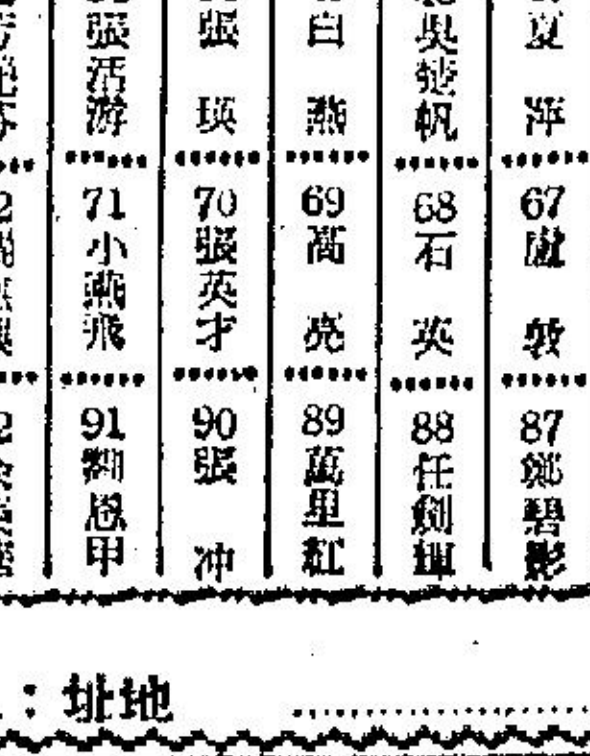 夏萍
67
盧敦
87
鄭碧影
吳楚帆
68
石英
88
任劍輝
白燕
69
高亮
89
萬里紅
張瑛
70
張英才
90
張冲
張活游
71
小燕飛
91
劉恩甲
地址：